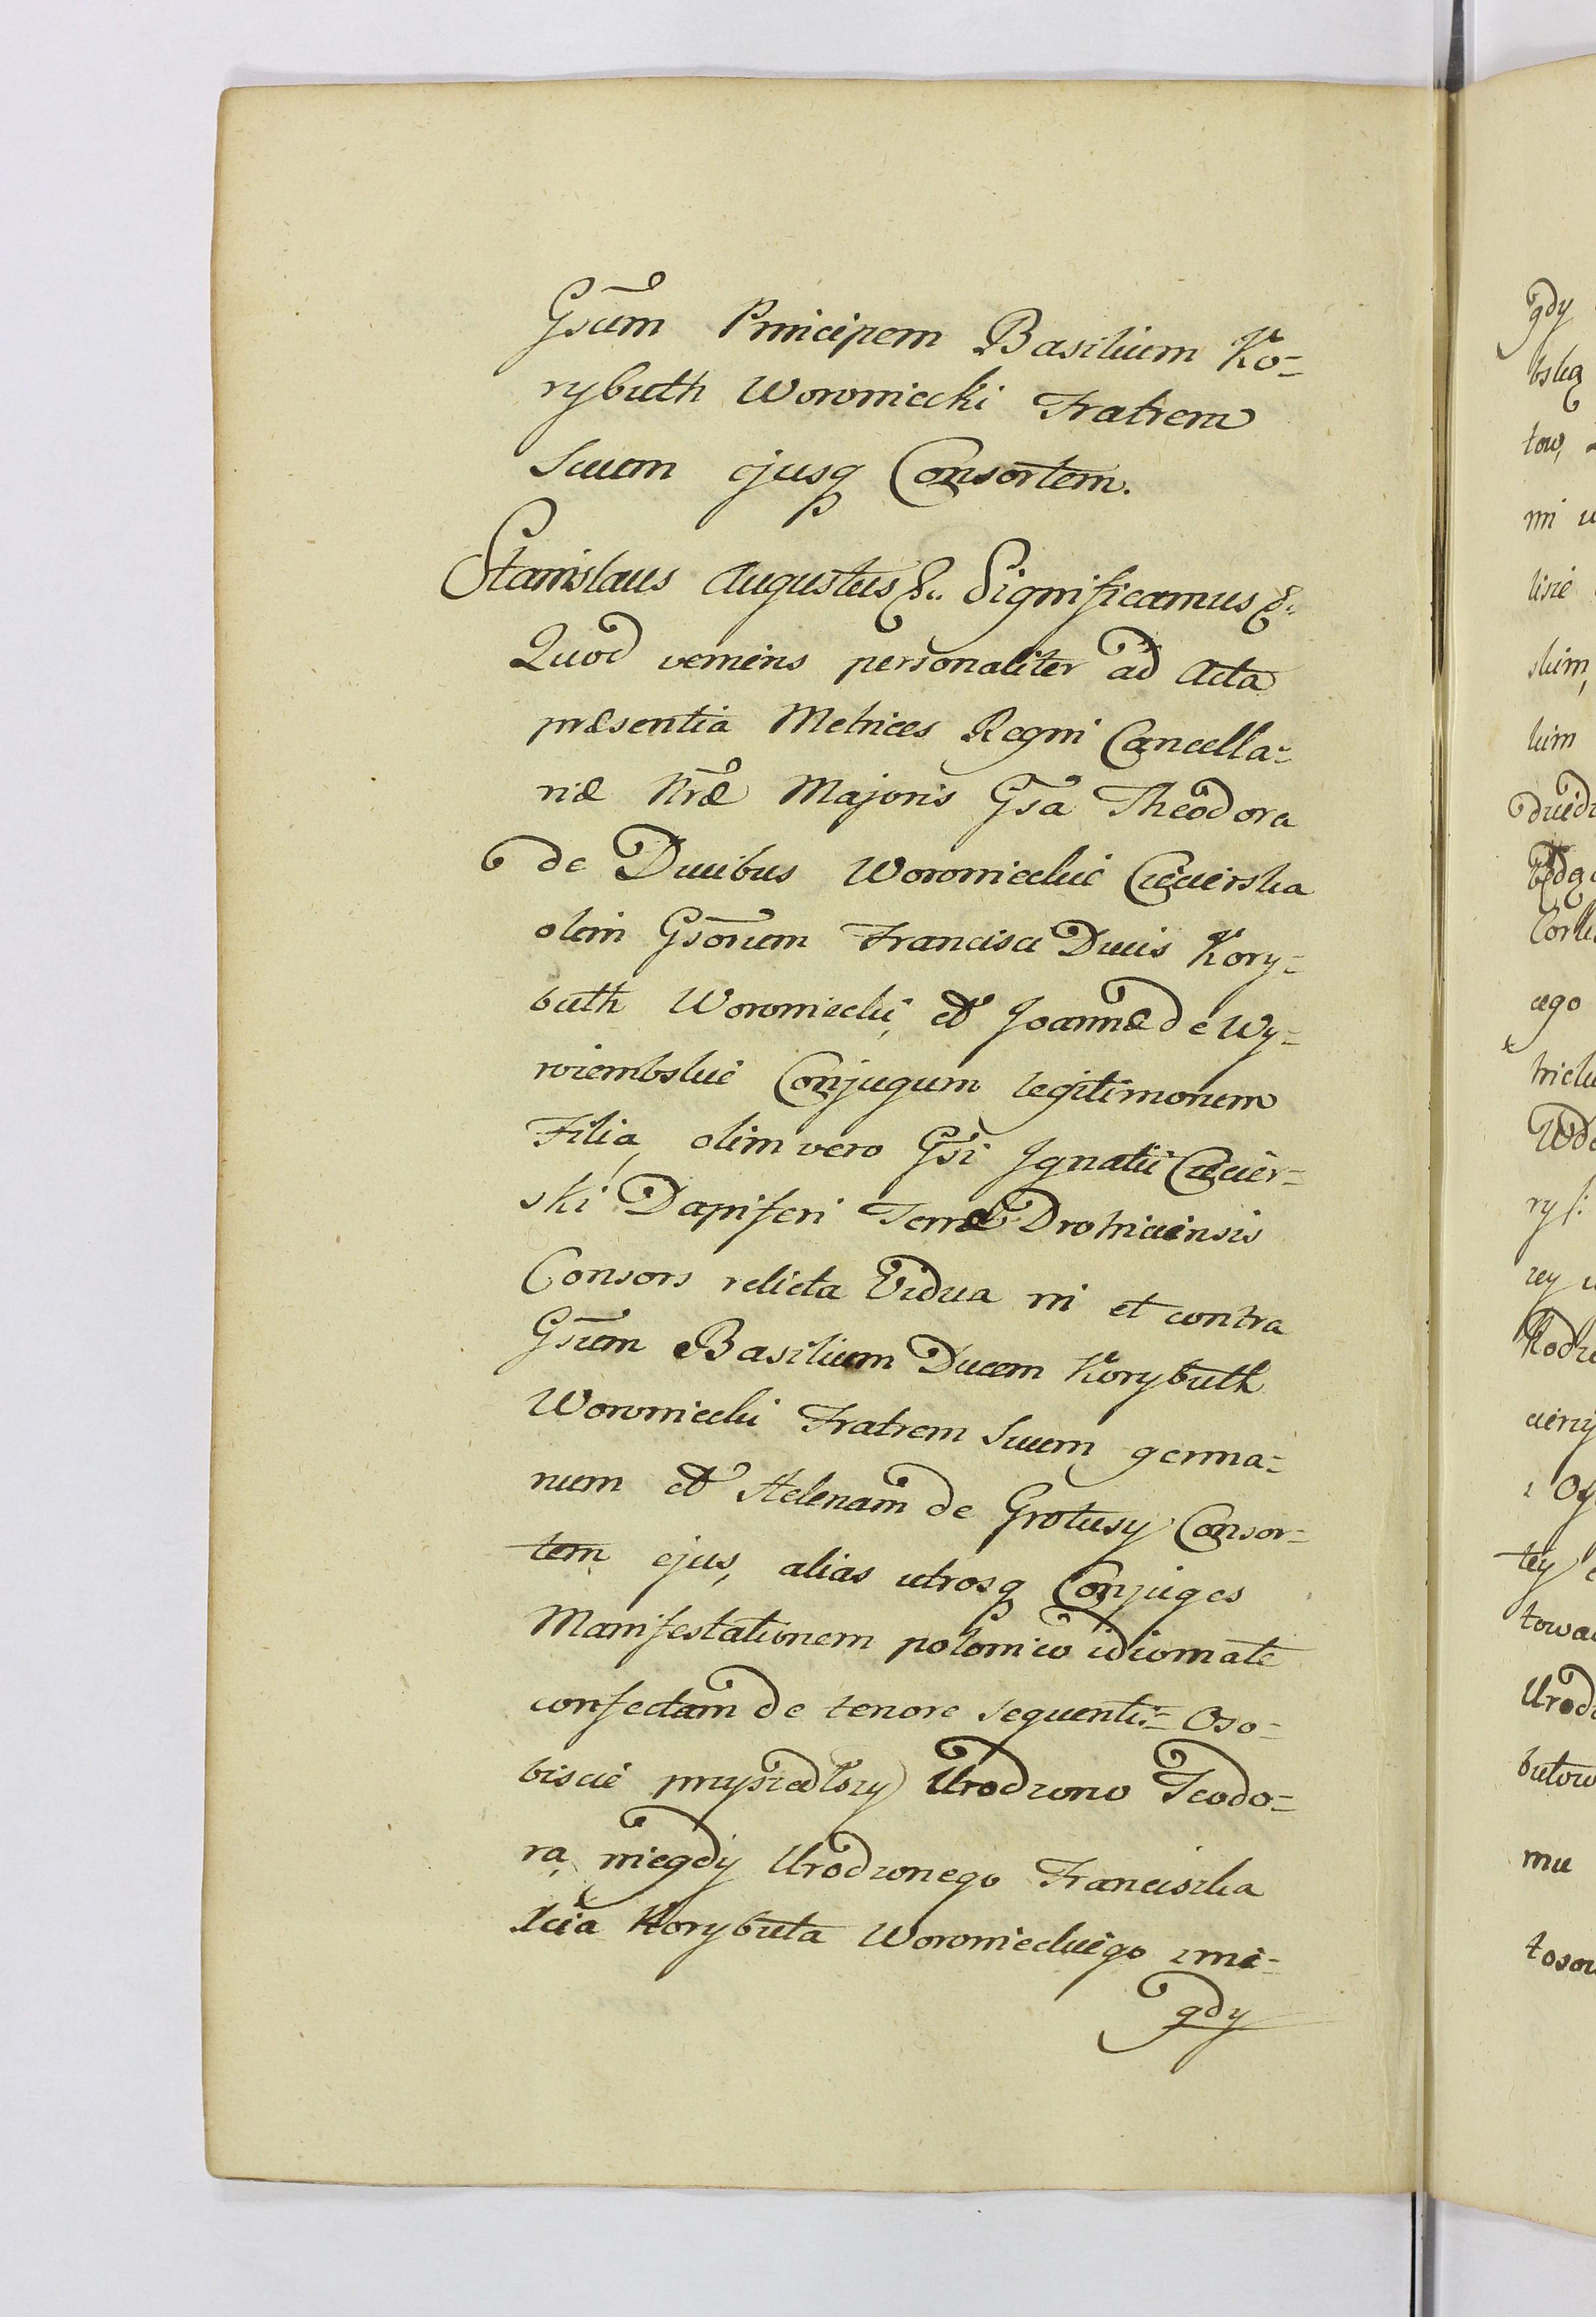 Gsum̃ Principem Basilium Ko=
rybuth Woroniecki Fratrem
Suum ejusq Consortem.
Stanislaus Augustus &.. Significamus &..
Quod veniens personaliter ad Acta
præsentia Metrices Regni Cancella=
riæ Nræ Majoris Gsa Theodora
de Ducibus Woronieckie Ciecierska
olim Gsorum Francisci Ducis Kory=
buth Woroniecki, et Joannæ de Wy=
roiembskie Conjugum legitimorum
Filia, olim vero Gsi Ignatii Ciecier=
ski Dapiferi Terræ Drohiciensis
Consors relicta Vidua in et contra
Gsum Basilium Ducem Korybuth
Woroniecki Fratrem Suum germa=
num et Helenam de Grotusy Consor=
tem ejus, alias utrosq Conjuges
Manifestationem polonico idiomate
confectam de tenore sequenti:= Oso=
biscie przyszedłszy Urodzono Teodo=
ra, niegdy Urodzonego Franciszka
Xcia Korybuta Woronieckiego znie=
gdy
gdy
bską
tow,
mi
lisie
skim,
kim
cego
ry /:
tey
mu